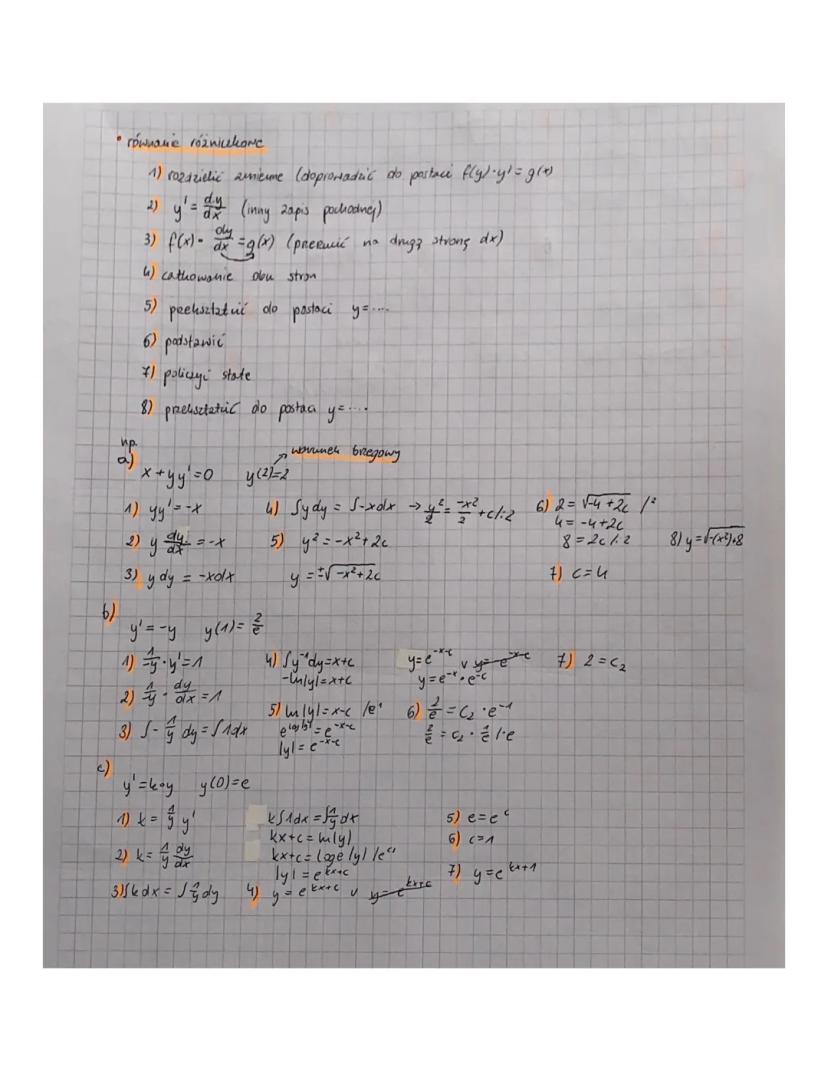 • równanie różniczkowe
1) rozdzielić zmienne (doprowadzić do postaci f(y)·y' = g(x)
2) y' = dy/dx (inny zapis pochodnej)
3) f(x)· dy/dx = g(x) (przerzucić na drugą stronę dx)
4) całkowanie obu stron
5) przekształcić do postaci y=....
6) podstawić
7) policzyć stałe
8) przekształcić do postaci y=....
np.
a) x + yy' = 0 y(2)=2 → warunek brzegowy
1) yy' = -x
2) y dy/dx = -x
3) y dy = -xdx
4) ∫ydy = ∫-xdx → y²/2 = -x²/2 + c /·2
5) y² = -x² + 2c
y = ±√-x²+2c
6) 2 = √-4+2c /²
4 = -4+2c
8 = 2c /:2
7) c = 4
8) y = √-(x²)+8
b) y' = -y y(1) = 2/e
1) 1/-y · y' = 1
2) 1/-y · dy/dx = 1
3) ∫- 1/y dy = ∫1dx
4) ∫y⁻¹dy = x+c
-ln|y| = x+c
5) ln|y| = x-c /e^
e^log|y| = e^-x-c
|y| = e^-x-c
y = e^-x-c v y = e^-x-c
y = e^-x · e^-c
6) 2/e = C₂ · e⁻¹
2/e = C₂ · 1/e /·e
7) 2 = C₂
c) y' = k·y y(0)=e
1) k = 1/y y'
2) k = 1/y dy/dx
3) ∫k dx = ∫1/y dy
k∫1dx = ∫1/y dx
kx+c = ln|y|
kx+c = loge|y| /e^
|y| = e^kx+c
4) y = e^kx+c v y = e^kx+c
5) e = e^c
6) c = 1
7) y = e^kx+1